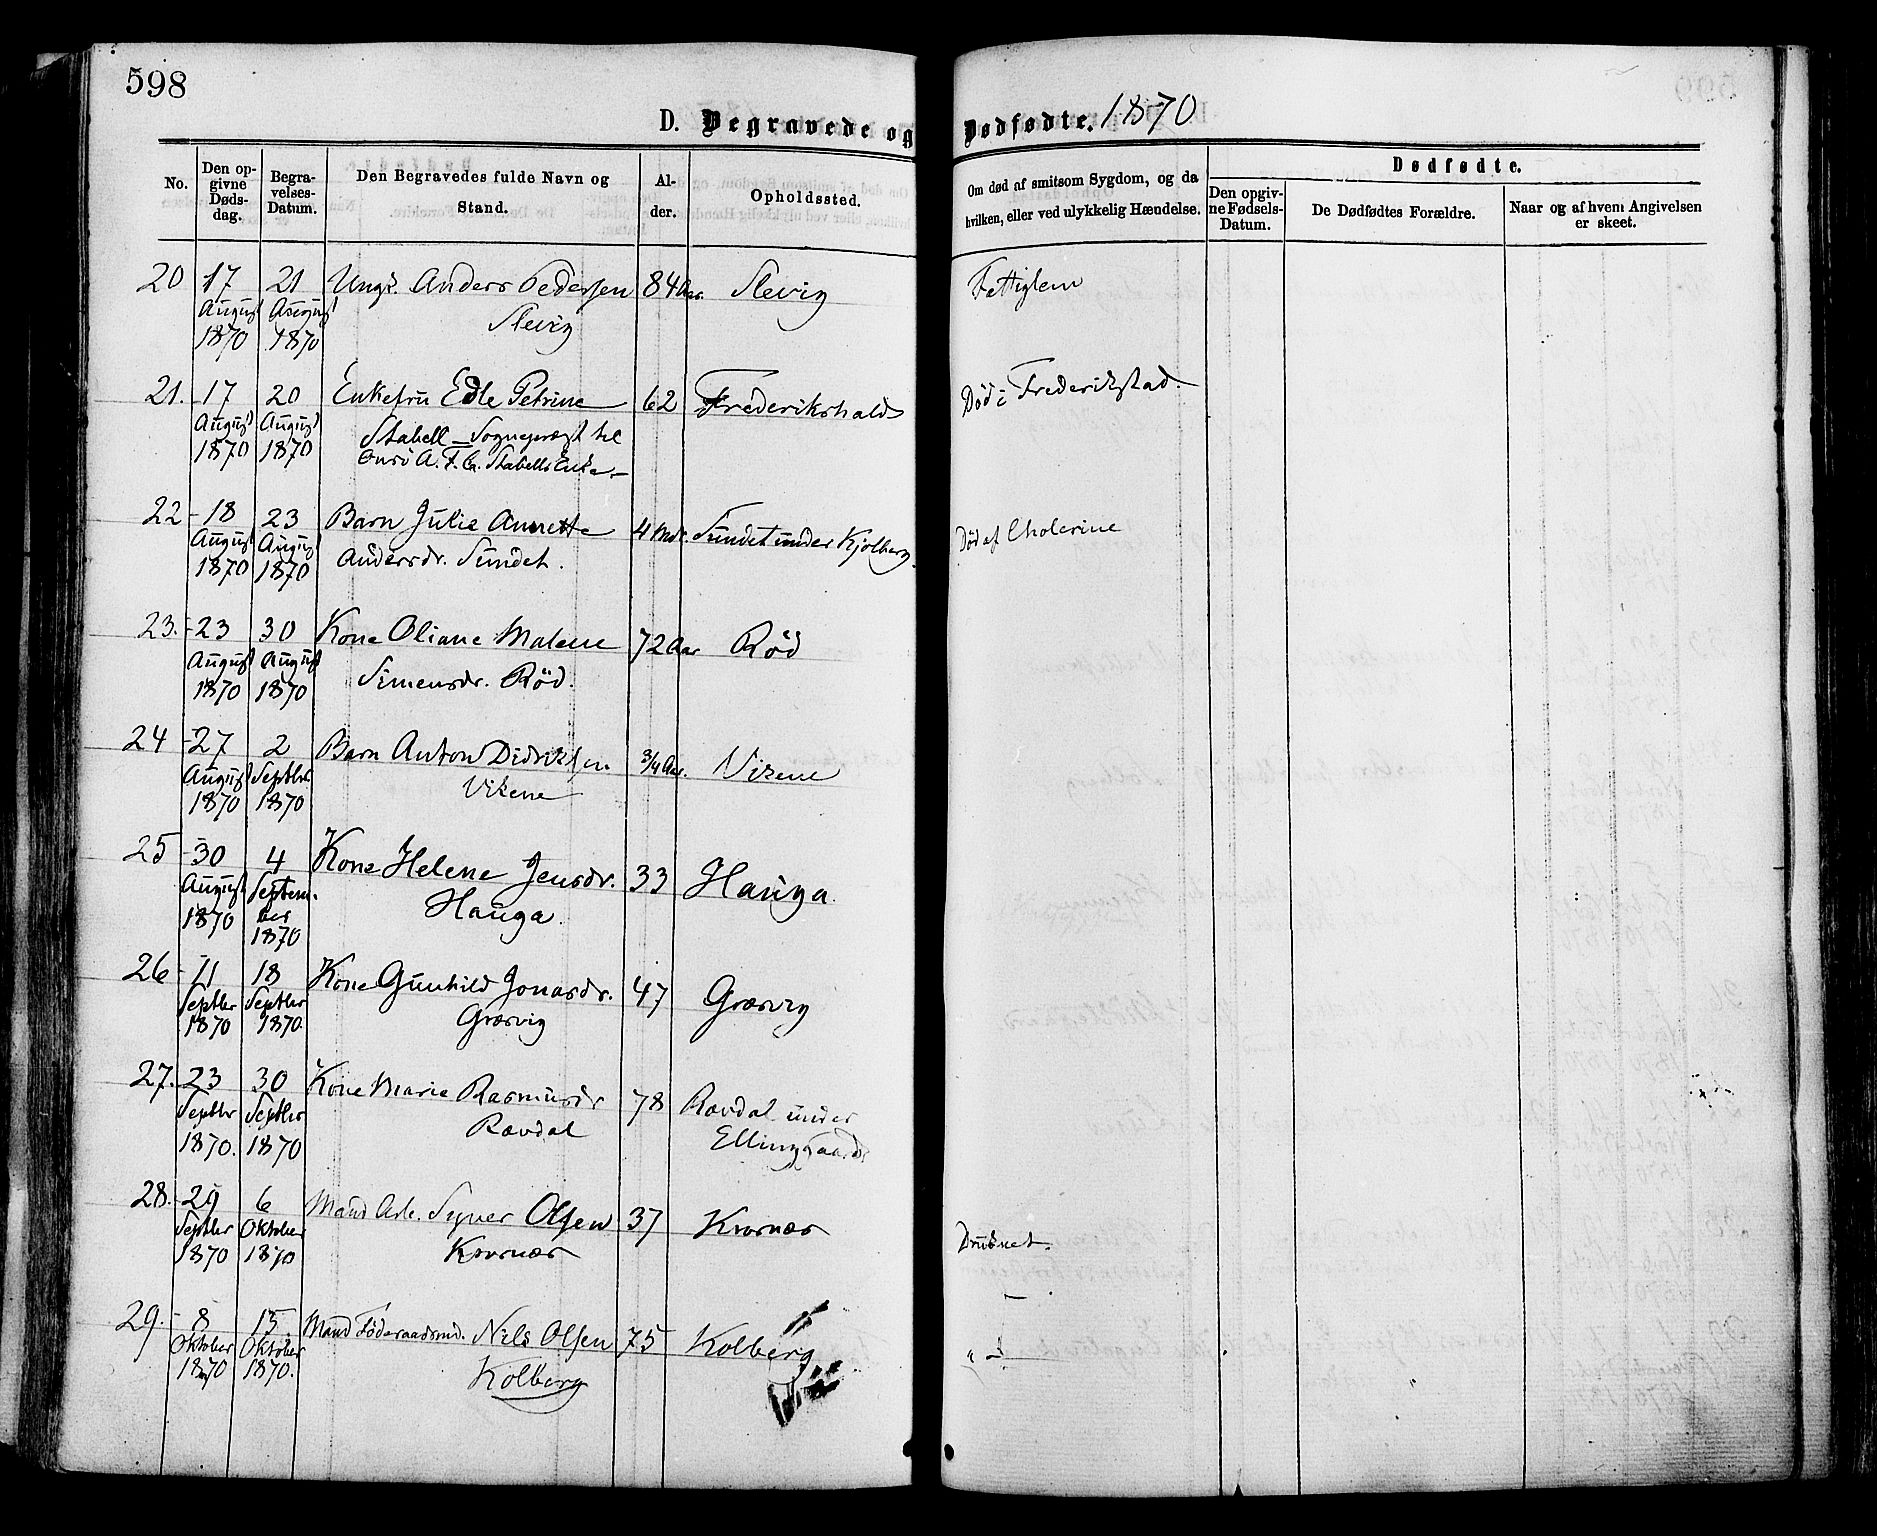 598
D. Begravede og Dødfødte. 1870
No.
Den opgivne Dødsdag.
Begravelses-Datum.
Den Begravedes fulde Navn og Stand.
Alder.
Opholdssted.
Om død af smitsom Sygdom, og da hvilken, eller ved ulykkelig Hændelse.
Dødfødte.
Den opgivne Fødsels-Datum.
De Dødfødtes Forældre.
Naar og af hvem Angivelsen er skeet.
20 17 21 Ungk. Anders Pedersen 84 Aar. Slevig Fattiglem
August August Slevig
1870 1870
21. 17 20 Enkefru Edle Petrine 62 Frederikshald Død i Frederikstad.
August August Stabell – Sogneprest til
1870 1870 Onsö A. F. G. Stabells Enke –
22 18 23 Barn Julie Annette 4 Mdr. Sundet under Kjølberg. Død af Cholerine
August August Andersdr. Sundet.
1870 1870
23. 23 30 Kone Oliane Malene 72 Aar Rød
August August Simensdr. Rød.
1870 1870
24 27 2 Barn Anton Didriksen 3/4 Aar. Vikene
August Septbr Vikene
1870 1870
25 30 4 Kone Helene Jensdr. 33 Hauga.
August Septem- Hauga.
1870 ber
1870
26 11 18 Kone Gunhild Jonasdr. 47 Græsvig
Septbr Septbr Græsvig
1870 1870.
27. 23 30 Kone Marie Rasmusdr 78 Rævdal under
Septbr Septbr Rævdal Ellinggaard
1870. 1870
28. 29 6 Mand Arb. Olsen 37 Kvernæs Druknet.
Septbr Oktober Kvernæs
1870 1870
29. 8 15 Mand Föderaadsmd. Nils Olsen 75 Kolberg
Oktober Oktober Kolberg
1870 1870.